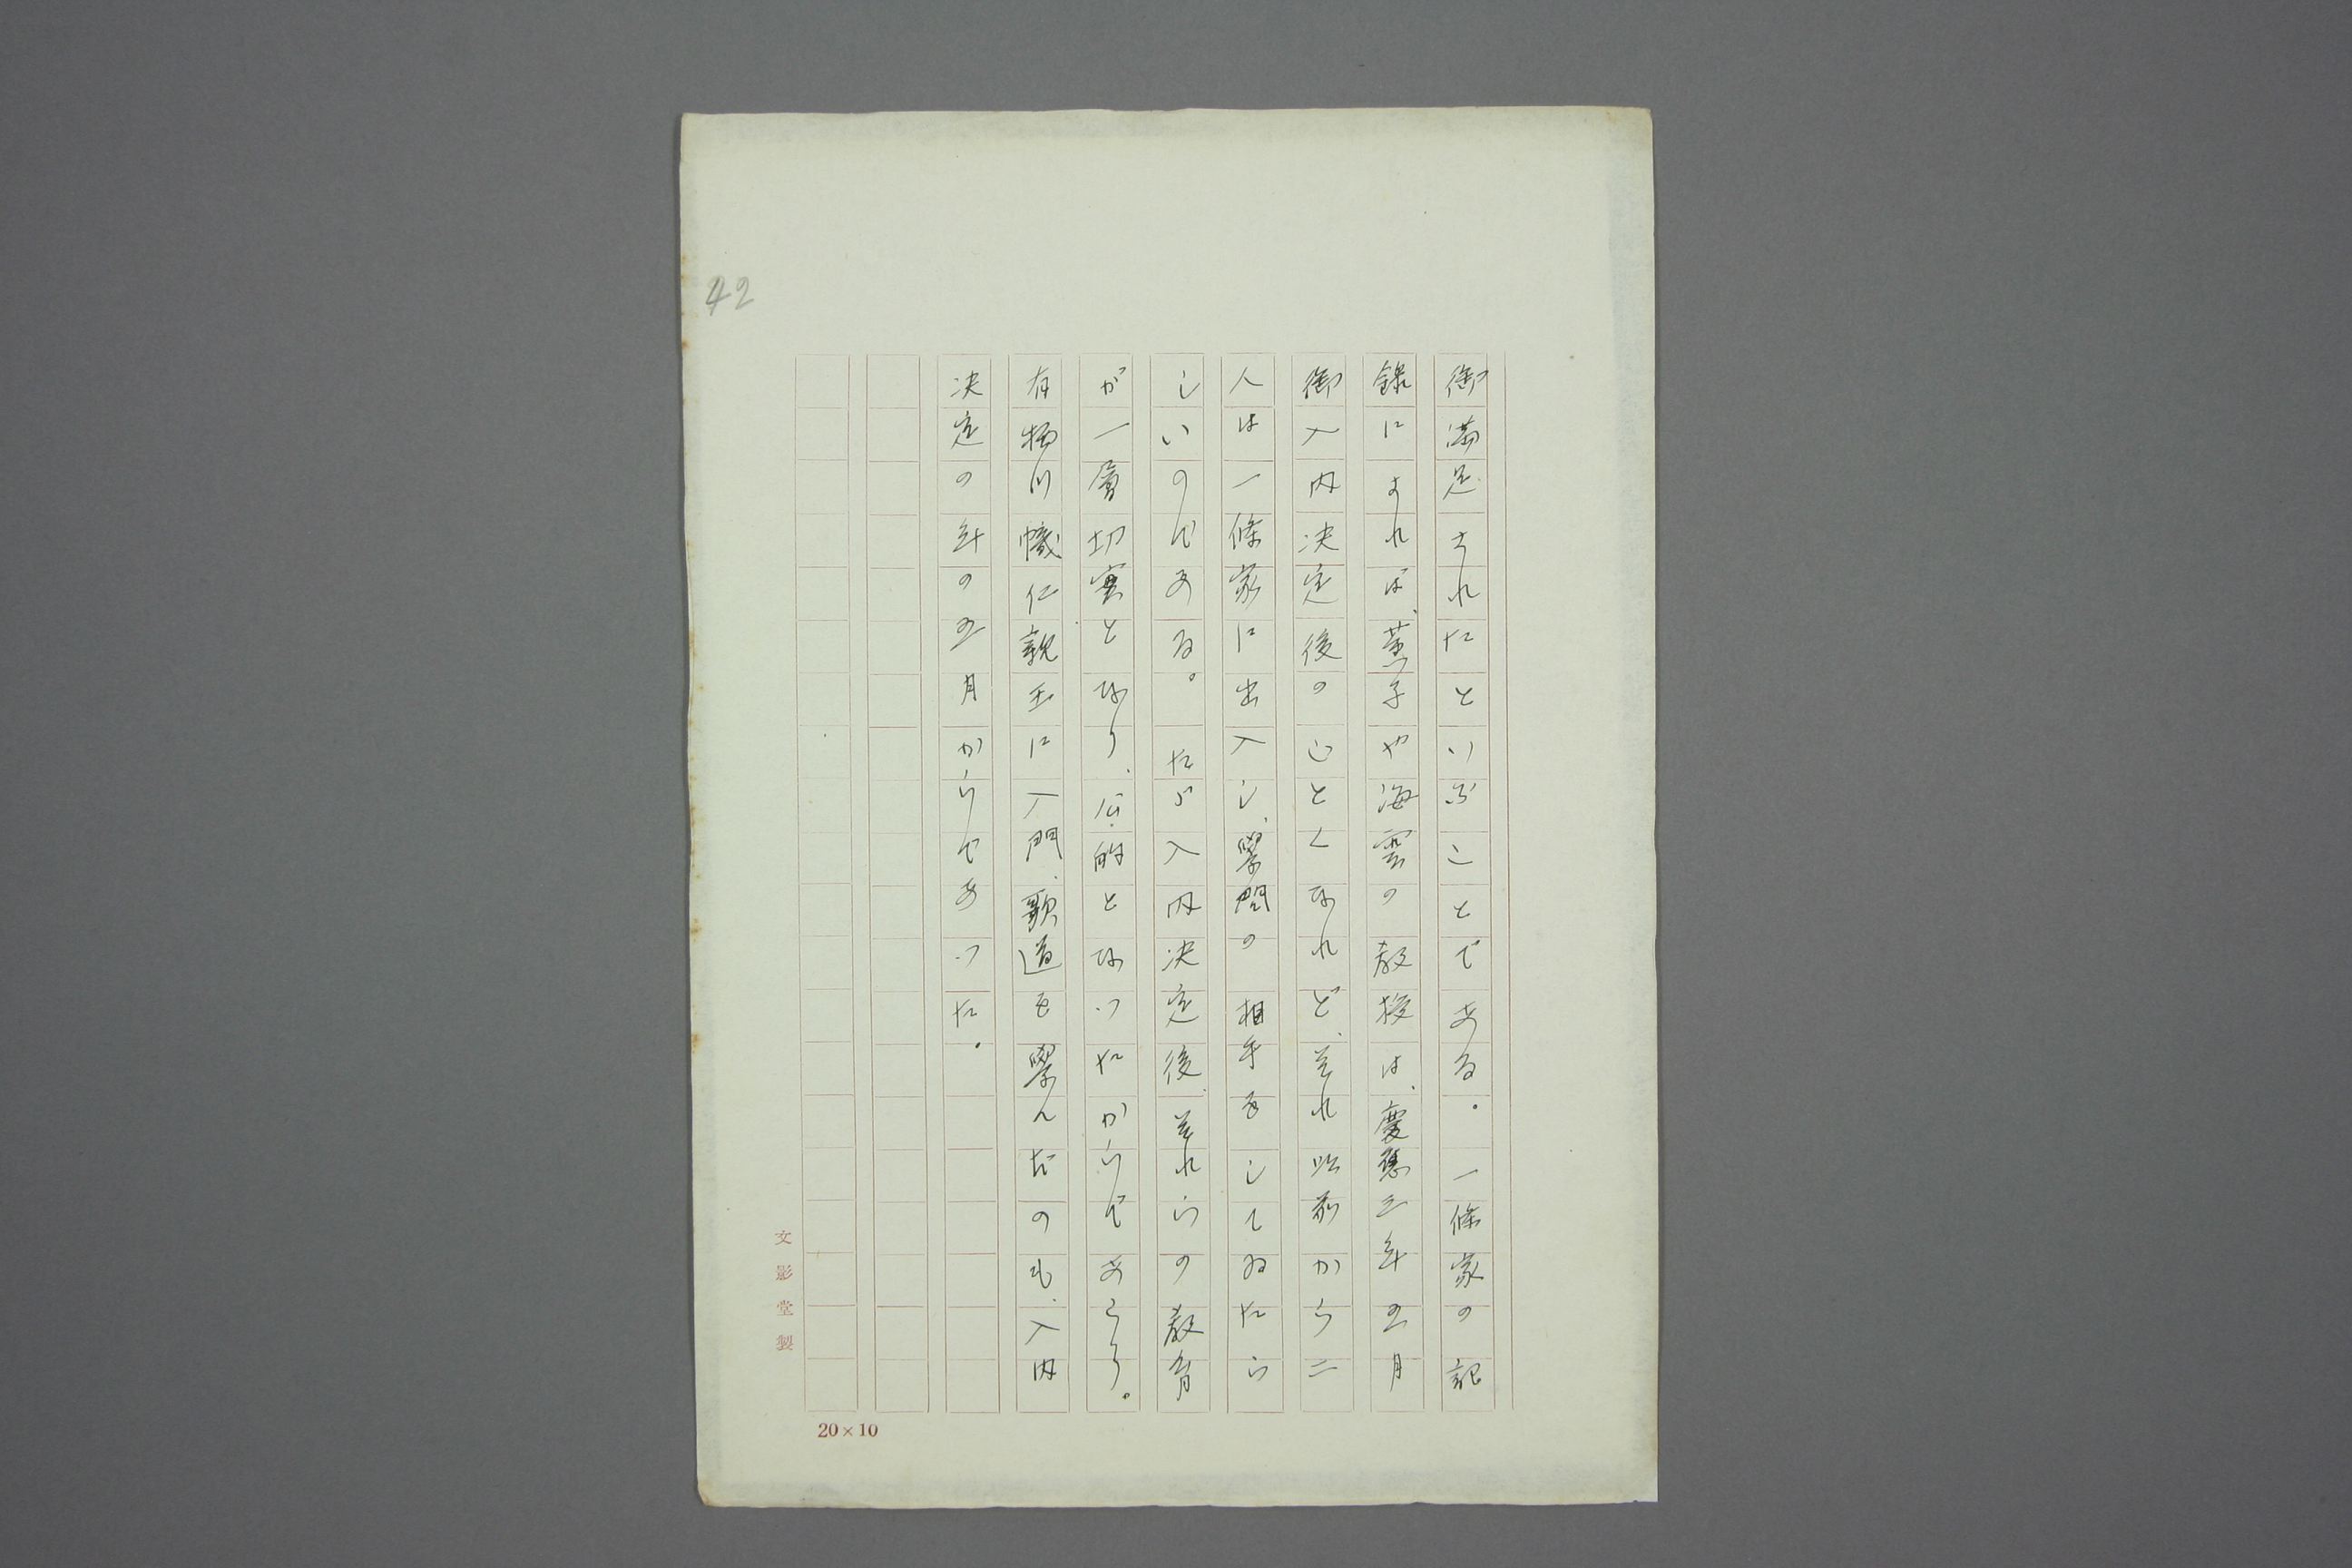 御満足されたといふことである。一條家の記
録によれば、薫子や海雲の教授は、慶應三年の五月
御入内決定後のことくなれど、それ以前から二
人は一條家に出入し、學問の相手をしてゐたら
しいのである。たゞ入内決定後、それらの教育
が一層切實となり、公的となつたからであらう。
有栖川幟仁親王に入門、歌道を學んだのも、入内
決定の年の五月からであつた。
42
文影堂製
20×10